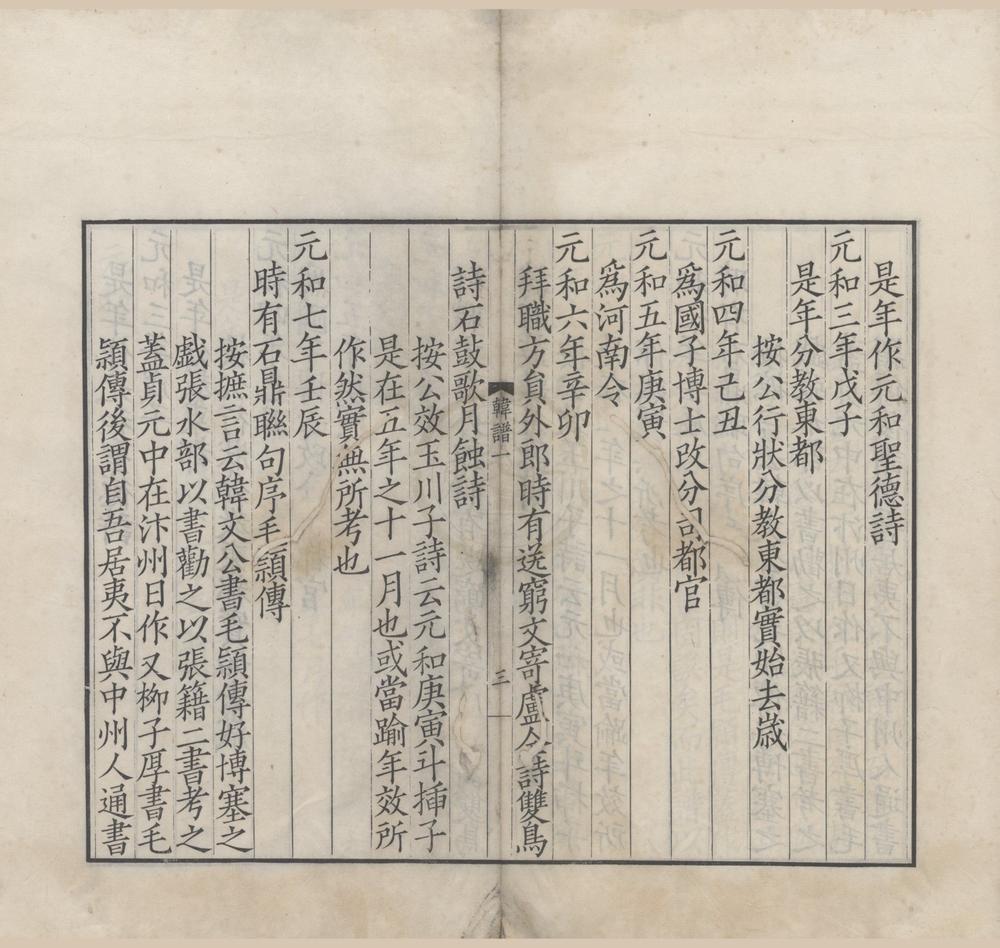 是年作元和聖德詩
元和三年戊子
是年分教東都
按公行狀分教東都實始去歲
元和四年己丑
爲國子博士改分司都官
元和五年庚寅
爲河南令
元和六年辛卯
拜職方貟外郎時有送窮文寄盧仝詩雙鳥
韓譜一
三
詩石鼓歌月蝕詩
按公效玉川子詩云元和庚寅斗揷子
是在五年之十一月也或當踰年效所
作然實無所考也
元和七年壬辰
時有石鼎聯句序毛頴傳
按摭言云韓文公書毛頴傳好博塞之
戲張水部以書勸之以張籍二書考之
蓋貞元中在汴州日作又柳子厚書毛
頴傳後謂自吾居夷不與中州人通書